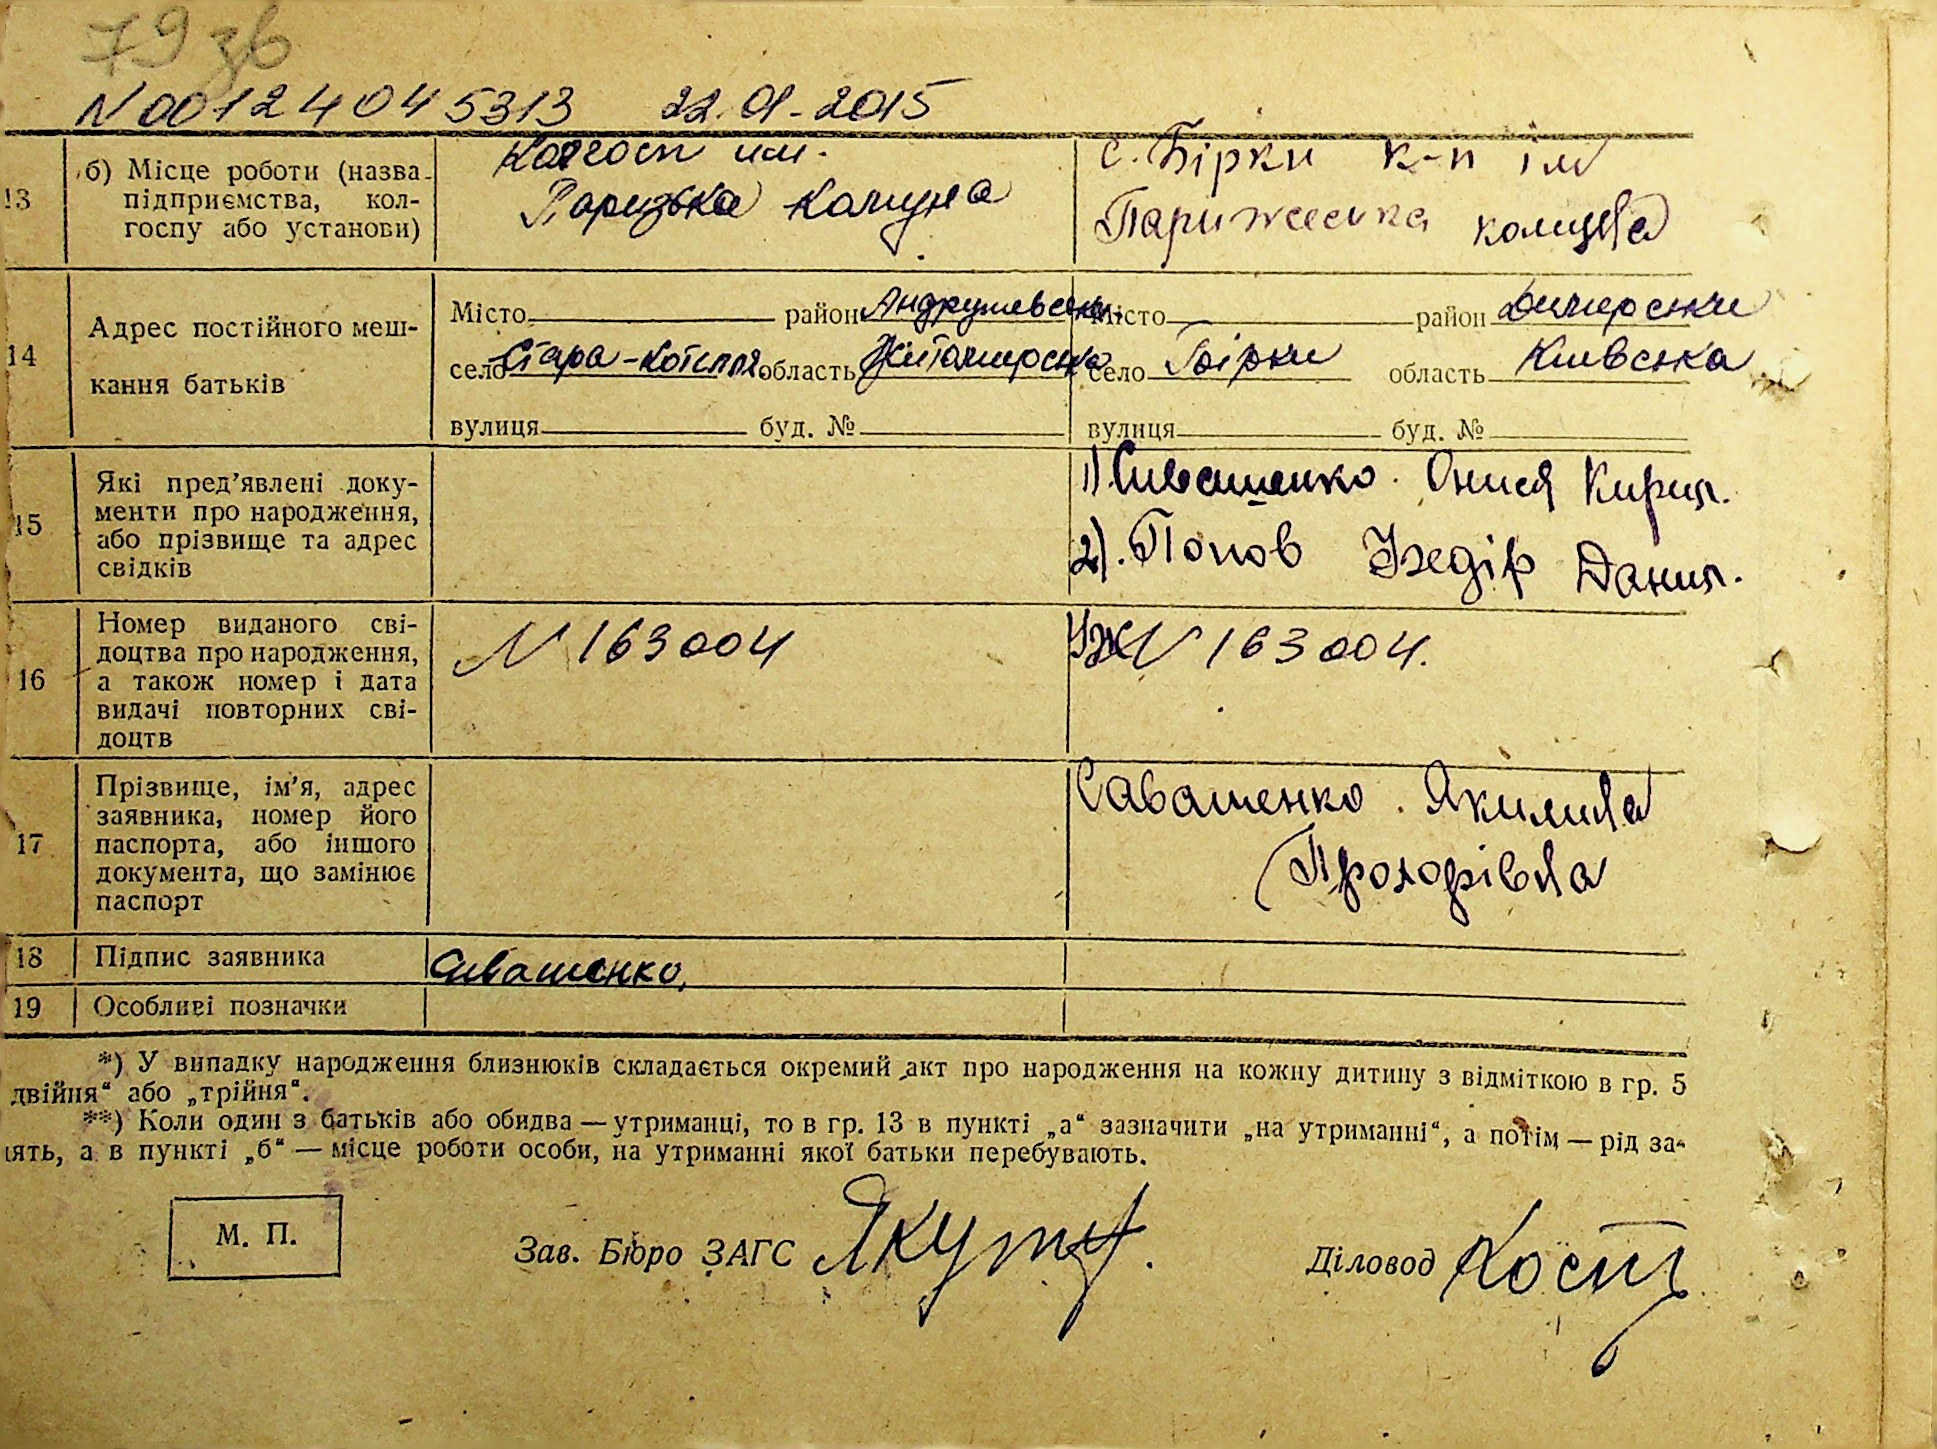 79 зв
N 00124045313 22.01-2015
13
б) Місце роботи (назва
підприємства, кол-
госпу або установи)
Колгосп им.
Паризька Комуна
с. Бірки к-п ім
Парижська комуна
14
Адрес постійного меш-
кання батьків
Місто район Андрушевська
село Стара-Котельня область Житомирська
вулиця буд. №
Місто район Димерський
село Бірки область Київська
вулиця буд. №
15
Які пред’явлені доку-
менти про народження,
або прізвище та адрес
свідків
1). Сивашенко. Онися Кирил.
2). Попов Хведір Данил.
16
Номер виданого сві-
доцтва про народження,
а також номер і дата
видачі повторних сві-
доцтв
N 163004
УЖ N 163004.
17
Прізвище, ім’я, адрес
заявника, номер його
паспорта, або іншого
документа, що замінює
паспорт
Савашенко. Якилина
Прохорівна
18
Підпис заявника
Сивашенко.
19
Особливі позначки
*) У випадку народження близнюків складається окремий акт про народження на кожну дитину з відміткою в гр. 5
двійня“ або „трійня“.
**) Коли один з батьків або обидва — утриманці, то в гр. 13 в пункті „а“ зазначити „на утриманні“, а потім — рід за-
нять, а в пункті „б“ — місце роботи особи, на утриманні якої батьки перебувають.
М. П.
Зав. Бюро ЗАГС
Діловод